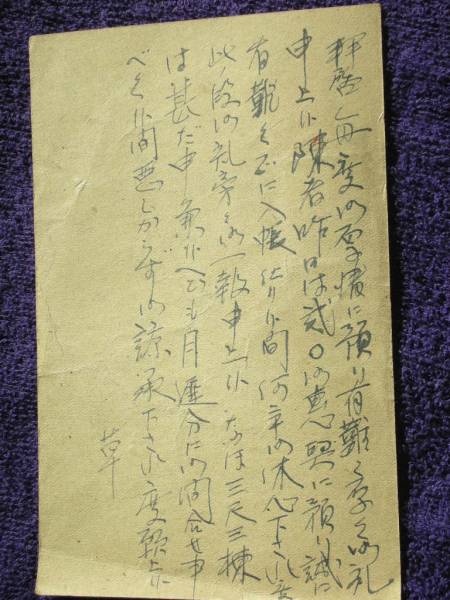 拝啓 毎度御厚情に預り有難く厚く御礼
申上候 陳者昨日は弐〇御恵与に預り誠に
有難く正に入帳仕り候間何卒御休心下され度
此段御礼旁々御一報申上候 なほ三尺三棟
は甚だ申兼候へども月遅分に御間合せ申
べく候間悪しからず御諒承下され度願上候
草